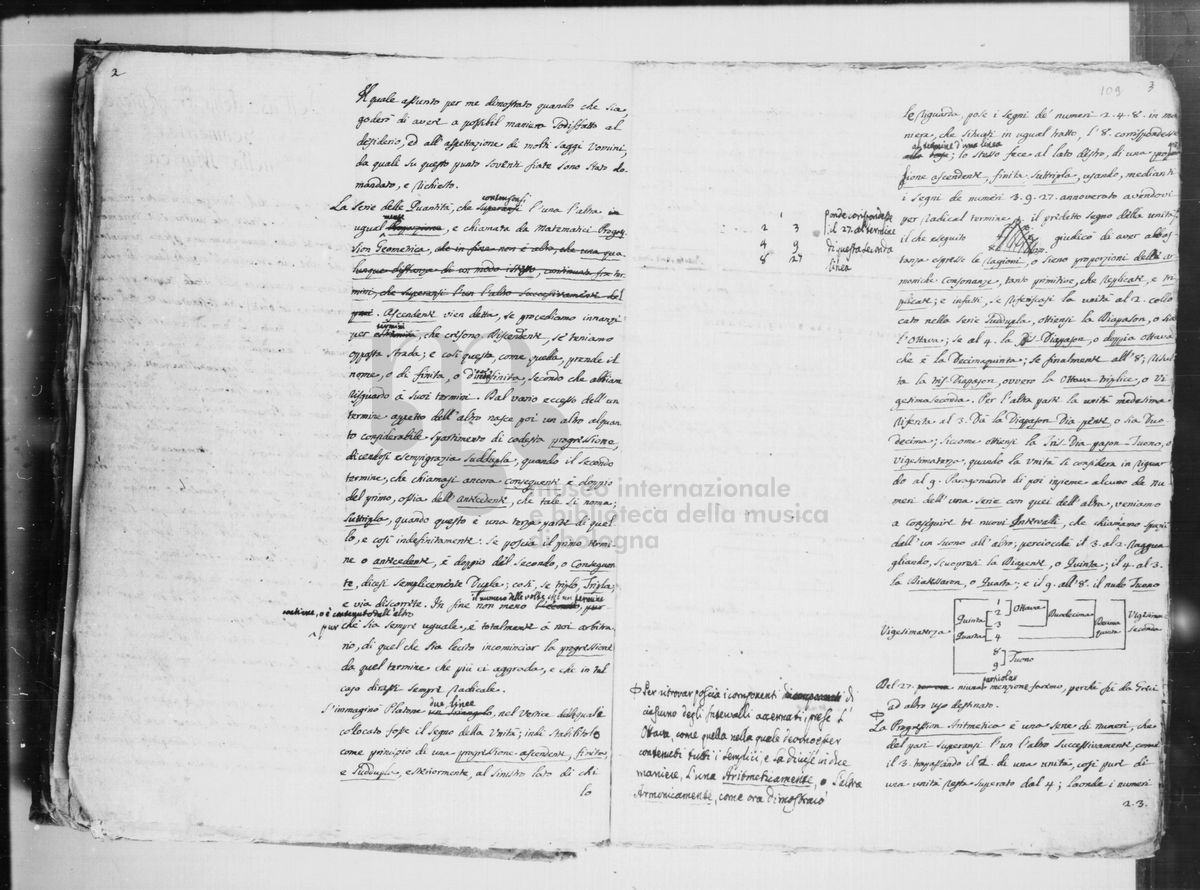 2
Il quale assunto per me dimostrato quando che sia,
goderò di avere a possibil maniera sodisfatto al
desiderio, ed all'aspettazione di molti saggi Uomini,
da quali su questo punto sovente fiate sono stato do,,
mandato, e richiesto.
La serie delle Quantità, che superansi l'una l'altra in
contensasi
ugual, e chiamata da Matematici Progres,,
mente
sion Geometrica, che in fine non è altro, che una qua,,
lunque distanza di un modo istesso, continua fra ter,,
mini, che superansi l'un l'altro successivamente del
pari. Ascendente vien detta, se procediamo innanzi
per, che crescono Discendente, se teniamo
termini
opposta strada; e così questa, come quella, prende il
nome, o di finita, o d'indefinita, secondo che abbiam
risguardo a suoi termini. Dal vario eccesso dell'un
termine rispetto dell'altro nasce poi un altro alquan,,
to considerabile spartimento di codesta progressione,
dicendosi esempigrazia suddupla, quando il secondo
termine, che chiamasi ancora conseguente è doppio
del primo, ossia dell'antecedente, che tale si noma,
suttripla, quando questo è una terza parte di quel,,
lo, e così indefinitamente. Se poscia il primo termi,,
ne o antecedente, è doppio del secondo, o conseguen,,
te, dicesi semplicemente Dupla; così, se triplo, Tripla;
e via discorrete. In fine non meno il secondo, pur
il numero delle volte, che un termine
contiene, o è contenuto dall'altro
pur che sia sempre uguale, è totalmente a noi arbitra,,
rio, di quel che sia lecito incominciar la progressione
da quel termine che più ci aggrada, e che in tal
caso dirassi sempre radicale.
S'immaginò Platone un triangolo, nel vertice del quale
due linee
colocato fosse il segno della Unità; indi stabilitolo
come principio di una progressione ascendente, finita,
e suddupla, esteriormente, al sinistro lato di chi
lo
1
2 3
4 9
8 27
ponde corrispondesse
il 27. al termine
di questa seconda
linea
Per ritrovar poscia i componenti di
ciascuno degli Intervalli accennati, prese l'
Ottava, come quella nella quale si conoscer
contenuti tutti i semplici, e la divise in due
maniere, l'una Aritmeticamente, e l'altra
Armonicamente, come ora dimostrerò
109
3
lo riguarda, pose i segni de' numeri 2. 4. 8. in ma,,
niera, che situati in ugual tratto, l'8. corrispondesse
al termine d'una linea
; lo stesso fece al lato destro, di una progres,,
sione ascendente, finita suttripla, usando, mediante
i segni de numeri 3. 9. 27. annoverato avendovi
per radical termine, il predetto segno della unità;
il che eseguito giudicò di aver abbas,,
tanza espresse le Ragioni, o sieno proporzioni delle ar,,
moniche consonanze, tanto primitive, che replicate, e tri,,
plicate; e infatti, se riferiscasi la unità al 2. collo,,
cato nella serie suddupla, ottiensi la Diapason, o sia
l'Ottava; se al 4. la Dis Diapason, o doppia ottava
che è la Decimaquinta; se finalmente all'8; risul,,
ta la tris Diapason, ovvero la Ottava triplice, o Vi,,
gesimaseconda. Per l'altra parte la unità medesima
riferita al 3. Dà la Diapason Dia pente, o sia Duo,,
decima; siccome ottiensi la Tris Dia pason-Tuono, o
Vigesimaterza, quando la unità si considera in rigua,,
do al 9. Paragonando di poi insieme alcuno de nu,,
meri dell'una serie con quei dell'altra, veniamo
a conseguire tre nuovi Intervalli, che chiamiamo spazi
dall'un suono all'altro; perciocchè il 3. al 2. raggua,,
gliando, scuopresi la Diapente, o Quinta; il 4. al 3.
la Diatessaron, o Quarta; e il 9. all'8. il nudo Tuono
1
2
3
4
8
9
Ottava
Quinta
Quarta
Duodecima
Decima
quinta
Vigesima
seconda
Vigesimaterza
Tuono
Del 27. niuna menzione faremo, perchè fu da Greci
particolar
ad altro uso destinato.
La Progression Aritmetica è una serie di numeri, che
del pari superansi l'un l'altro successivamente, come
il 3. trapassando il 2. di una unità, così pure di
una unità resta superato dal 4; laonde i numeri
2. 3.
museo internazionale
e biblioteca della musica
di bologna